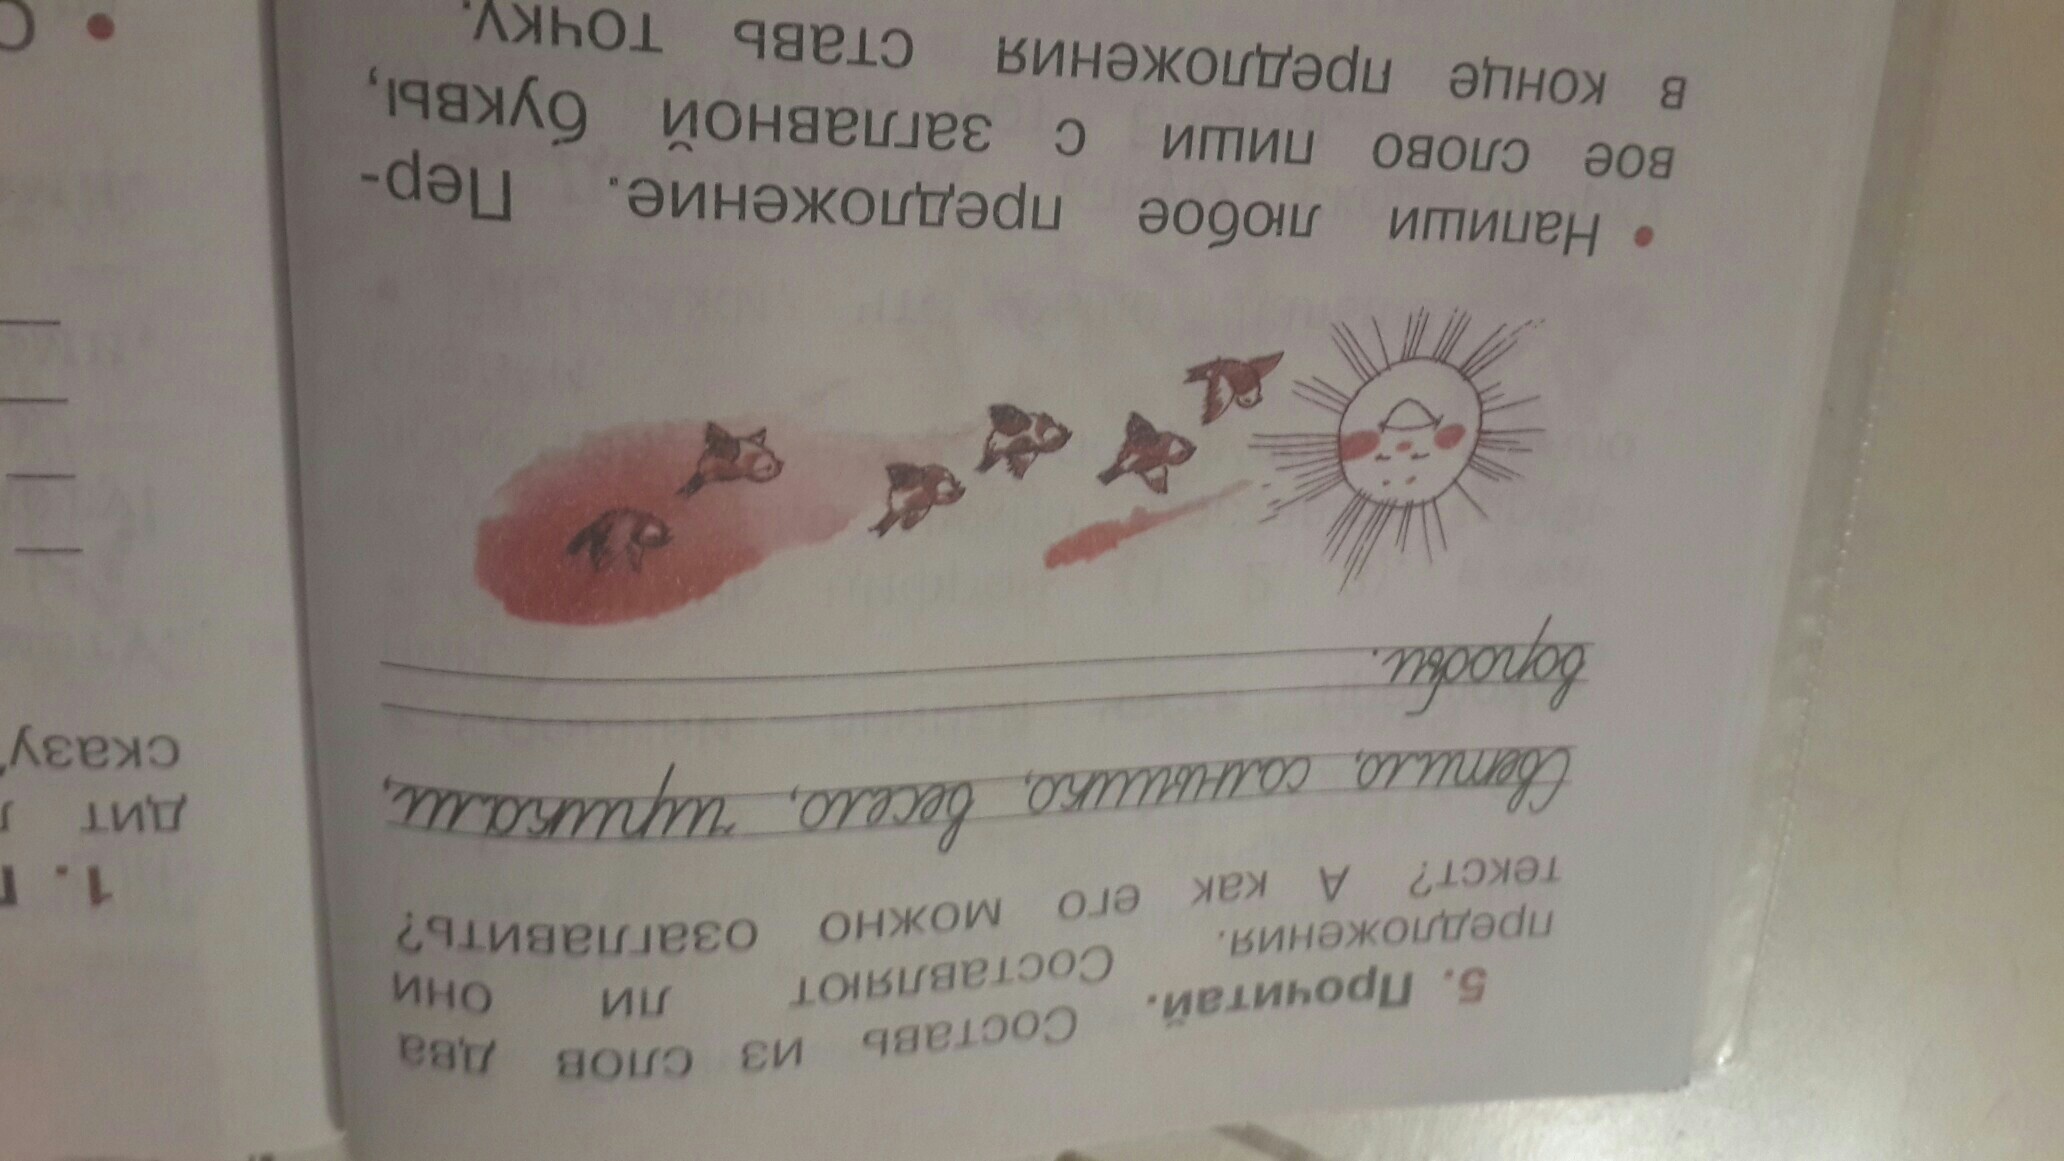 5. Прочитай. Составь из слов два
предложения. Составляют ли они
текст? А как его можно озаглавить?
Светило, солнышко, весело, чирикали,
воробьи.
• Напиши любое предложение. Пер-
вое слово пиши с заглавной буквы,
в конце предложения ставь точку.
1.
дит
сказу